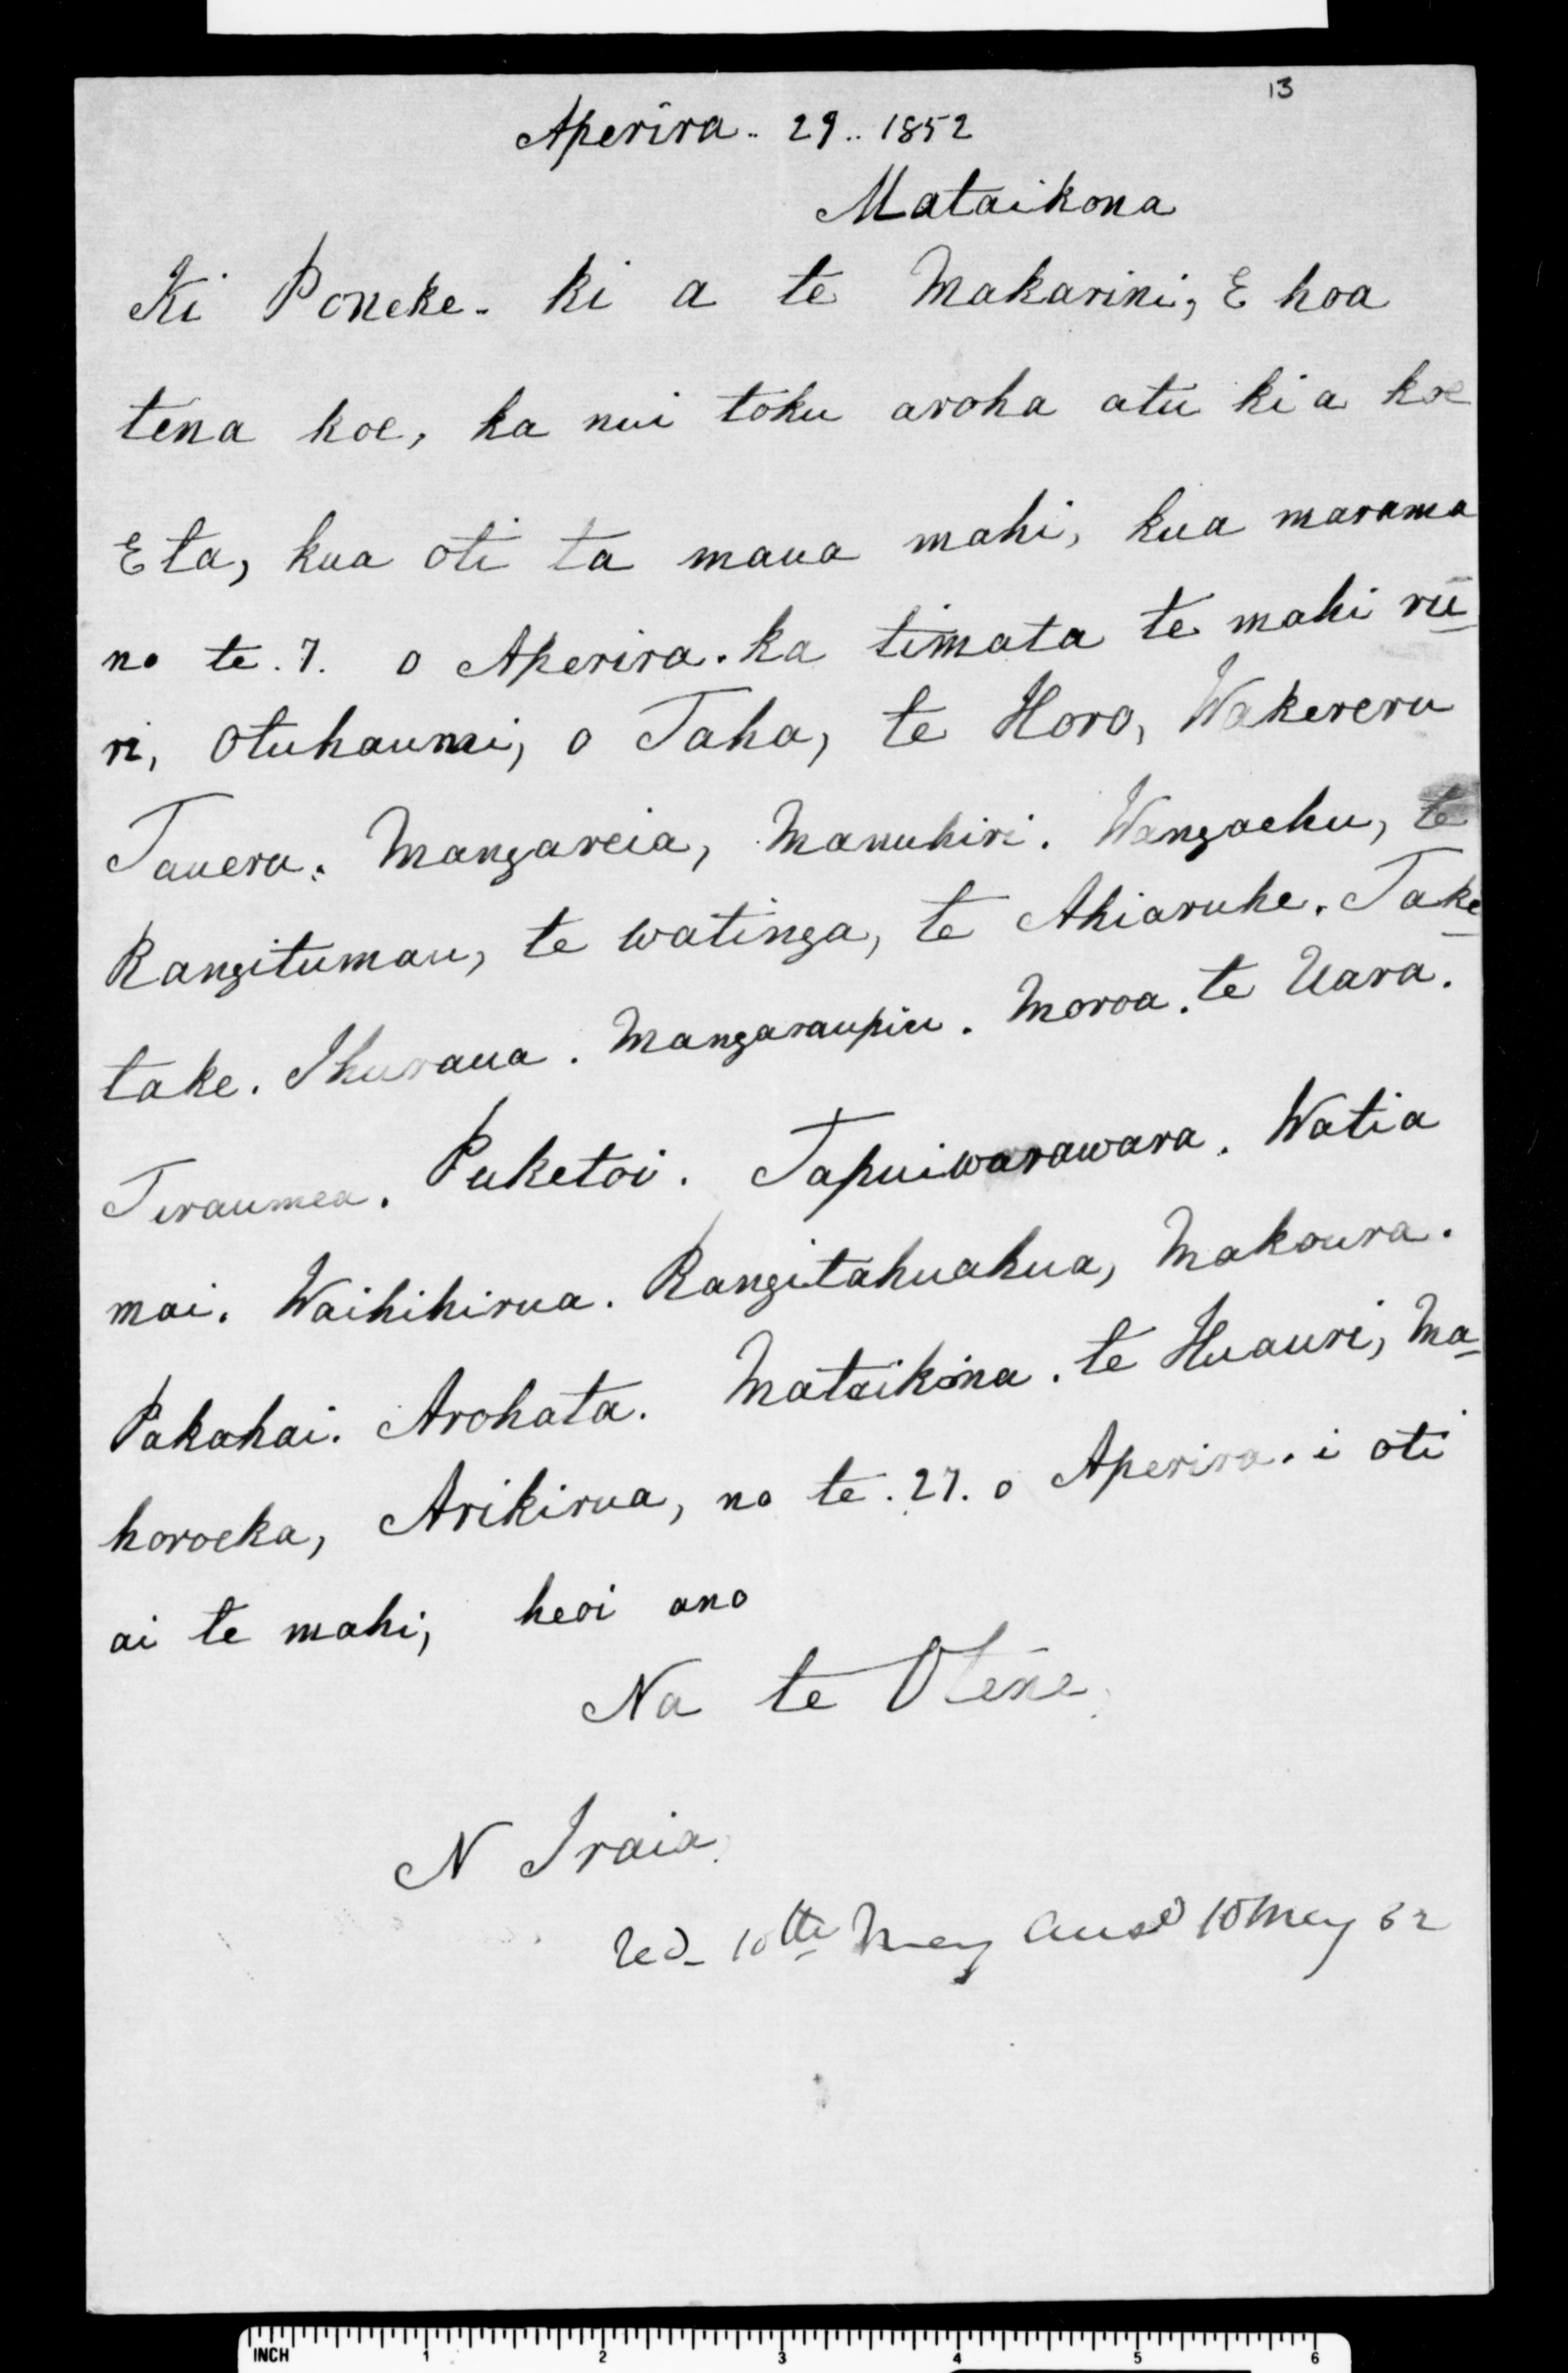 13
Aperira.. 29.. 1852
Mataikona
Ki Poneke. ki a te Makarini, E hoa
tena koe, ka nui toku aroha atu ki a koe
E ta, kua oti ta maua mahi, kua marama
no te. 7. o Aperira. ka timata te mahi ru
ri, Otuhaumi, o Taha, te Horo, Wakereru
Taueru. Mangareia, Manuhiri. Wangaehu, te
Rangitumau, te watinga, te Ahiaruhe. Take
take. Ihuraua. Mangaraupiu. Moroa. te Uara.
Tiraumea. Puketoi. Tapuiwarawara. Watia
mai. Waihihirua. Rangitahuahua, Makoura.
Pakahai. Arohata. Mataikona. te Huauri, Ma
horoeka, Arikirua, no te. 27. o Aperira. i oti
ai te mahi, heoi ano
Na te Otene.
N Iraia.
10th May Ansd 10 May 52
INCH 1 2 3 4 5 6